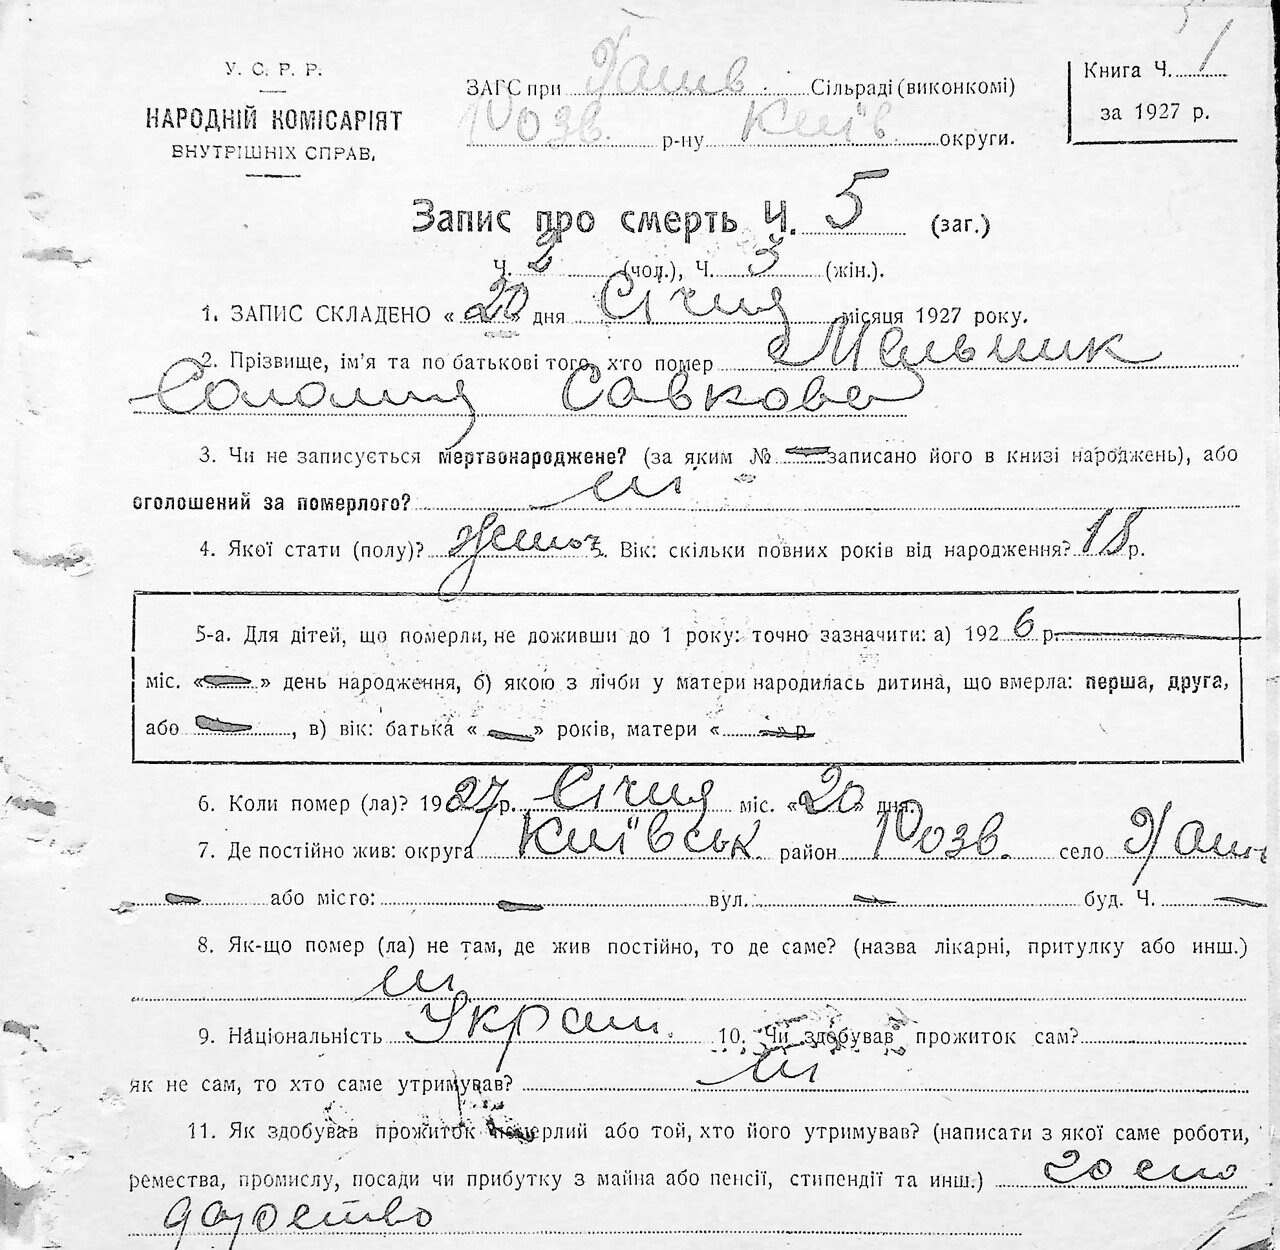 У. С. Р. Р.
НАРОДНІЙ КОМІСАРІЯТ
ВНУТРІШНІХ СПРАВ.
ЗАГС при Яхнів Сільраді (виконкомі)
Розв. р-ну Київ округи.
Книга Ч. 1
за 1927 р.
Запис про смерть Ч. 5 (заг.)
Ч. 2 (чол.), Ч. 3 (жін.).
1. ЗАПИС СКЛАДЕНО « 20 дня Січня місяця 1927 року.
2. Прізвище, ім'я та по батькові того, хто помер Мельник
Соломия Савкова
3. Чи не записується мертвонароджене? (за яким № — записано його в книзі народжень), або
оголошений за померлого? ні
4. Якої стати (полу)? жіноч. Вік: скільки повних років від народження? 18 р.
5-а. Для дітей, що померли, не доживши до 1 року: точно зазначити: а) 1926 р. —
міс. « — » день народження, б) якою з лічби у матери народилась дитина, що вмерла: перша, друга,
або —, в) вік: батька « — » років, матери « — » р.
6. Коли помер (ла)? 1927 р. Січня міс. « 20 » дня.
7. Де постійно жив: округа Київськ. район Розв. село
— або місто: — вул. — буд. Ч. —
8. Як-що помер (ла) не там, де жив постійно, то де саме? (назва лікарні, притулку або инш.)
ні
9. Національність Україн. 10. Чи здобував прожиток сам?
як не сам, то хто саме утримував? ні
11. Як здобував прожиток померлий або той, хто його утримував? (написати з якої саме роботи,
ремества, промислу, посади чи прибутку з майна або пенсії, стипендії та инш.) госпо
дарство